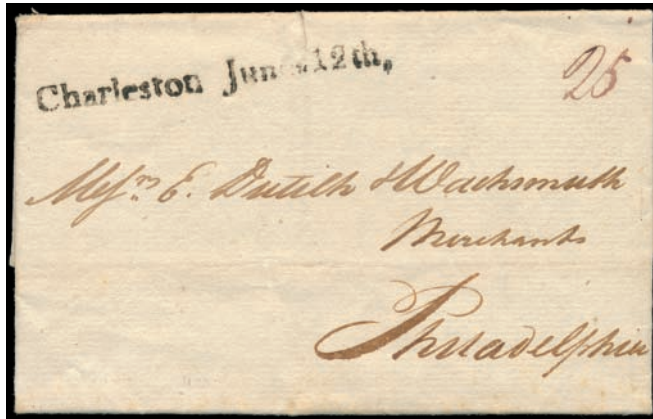 Charleston June 12th,
25
Messrs E. Dutilh & Wachsmuth
Merchants
Philadelphia